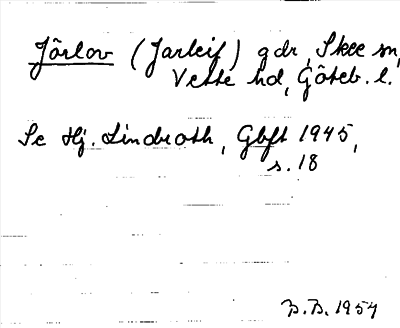 Jörlov (Jarleif) gdr, Skee sn,
Vette hd, Göteb. l.
Se Hj. Lindroth, Gbft 1945,
s. 18
B.B. 1954